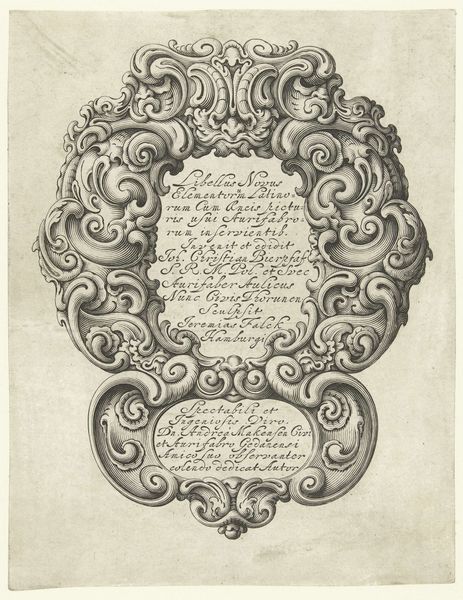 Libellus Novus
Elementorum Latino-
rum Cum Uncis pictu-
ris usui Aurifabro-
rum inservientib.
Invenit et edidit
Joi. Christian Bierpfaf
S. R. M. Pol. et Svec
Aurifaber Aulicus
Nunc Civis Thorunen
Sculpsit
Jeremias Falck
Hamburgi
Spectabili et
Ingeniosis Viro.
Dn. Andrea Makensen Civi
et Aurifabro Gedanensi
Amico suo observanter
colendo dedicat Autor